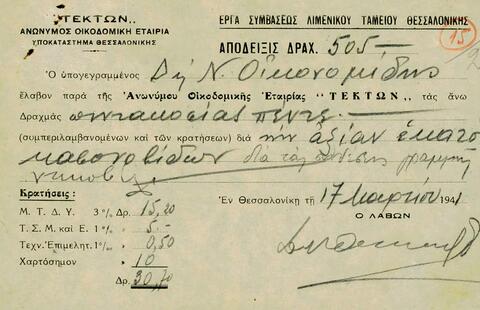 "ΤΕΚΤΩΝ,,
ΑΝΩΝΥΜΟΣ ΟΙΚΟΔΟΜΙΚΗ ΕΤΑΙΡΙΑ
ΥΠΟΚΑΤΑΣΤΗΜΑ ΘΕΣΣΑΛΟΝΙΚΗΣ
ΕΡΓΑ ΣΥΜΒΑΣΕΩΣ ΛΙΜΕΝΙΚΟΥ ΤΑΜΕΙΟΥ ΘΕΣΣΑΛΟΝΙΚΗΣ
15
ΑΠΟΔΕΙΞΙΣ ΔΡΑΧ. 505.—
Ὁ ὑπογεγραμμένος Δη. Ν. Οἰκονομίδης
ἔλαβον παρὰ τῆς Ἀνωνύμου Οἰκοδομικῆς Ἑταιρίας "ΤΕΚΤΩΝ,, τὰς ἄνω
Δραχμὰς πεντακοσίας πέντε —
(συμπεριλαμβανομένων καὶ τῶν κρατήσεων) διὰ τὴν ἀξίαν ἑκατὸ
διὰ τὰς γραμμῆς
Κρατήσεις :
Ἐν Θεσσαλονίκῃ τῇ 17 Μαρτίου 1941
Ο ΛΑΒΩΝ
Μ. Τ. Δ. Υ. 3 % Δρ. 15,20
Τ. Σ. Μ. καὶ Ε. 1 % » 5.-
Τεχν. Ἐπιμελητ. 1 % » 0,50
Χαρτόσημον » 10
Δρ. 30,70